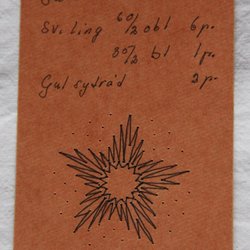 Sv. ling 60/2 obl 6 p.
30/2 bl 1 p.
Gul sytråd 2 p.